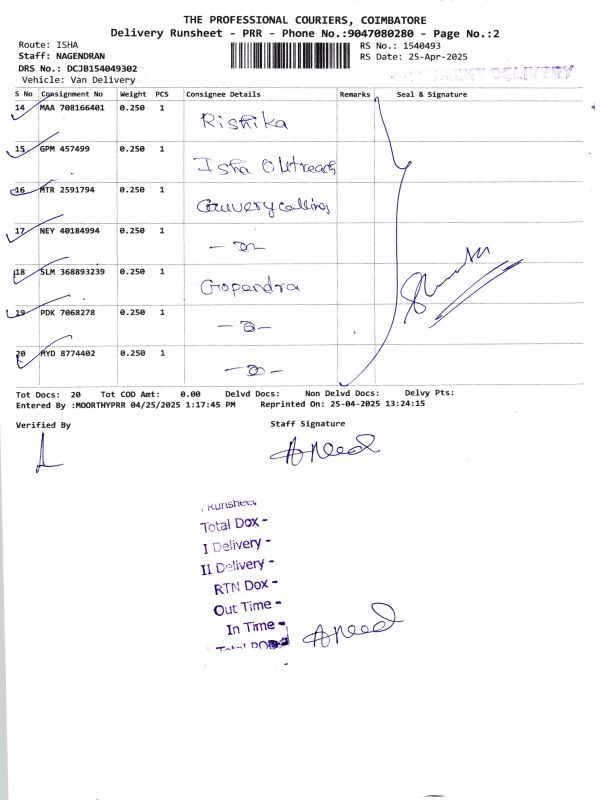 THE PROFESSIONAL COURIERS, COIMBATORE
Delivery Runsheet - PRR - Phone No.:9047080280 - Page No.:2
Route: ISHA
Staff: NAGENDRAN
DRS No.: DCJB154049302
Vehicle: Van Delivery
RS No.: 1540493
RS Date: 25-Apr-2025
DELIVERY
S No Consignment No Weight PCS Consignee Details Remarks Seal & Signature
14 MAA 708166401 0.250 1 Rishika
15 GPM 457499 0.250 1 Isha Outreach
16 MTR 2591794 0.250 1 Cauvery calling
17 NEY 40184994 0.250 1
18 SLM 368893239 0.250 1 Gopendra
19 PDK 7068278 0.250 1
20 MYD 8774402 0.250 1
Tot Docs: 20 Tot COD Amt: 0.00 Delvd Docs: Non Delvd Docs: Delvy Pts:
Entered By :MOORTHYPRR 04/25/2025 1:17:45 PM Reprinted On: 25-04-2025 13:24:15
Verified By
Staff Signature
Runsheet
Total Dox -
I Delivery -
II Delivery -
RTN Dox -
Out Time -
In Time -